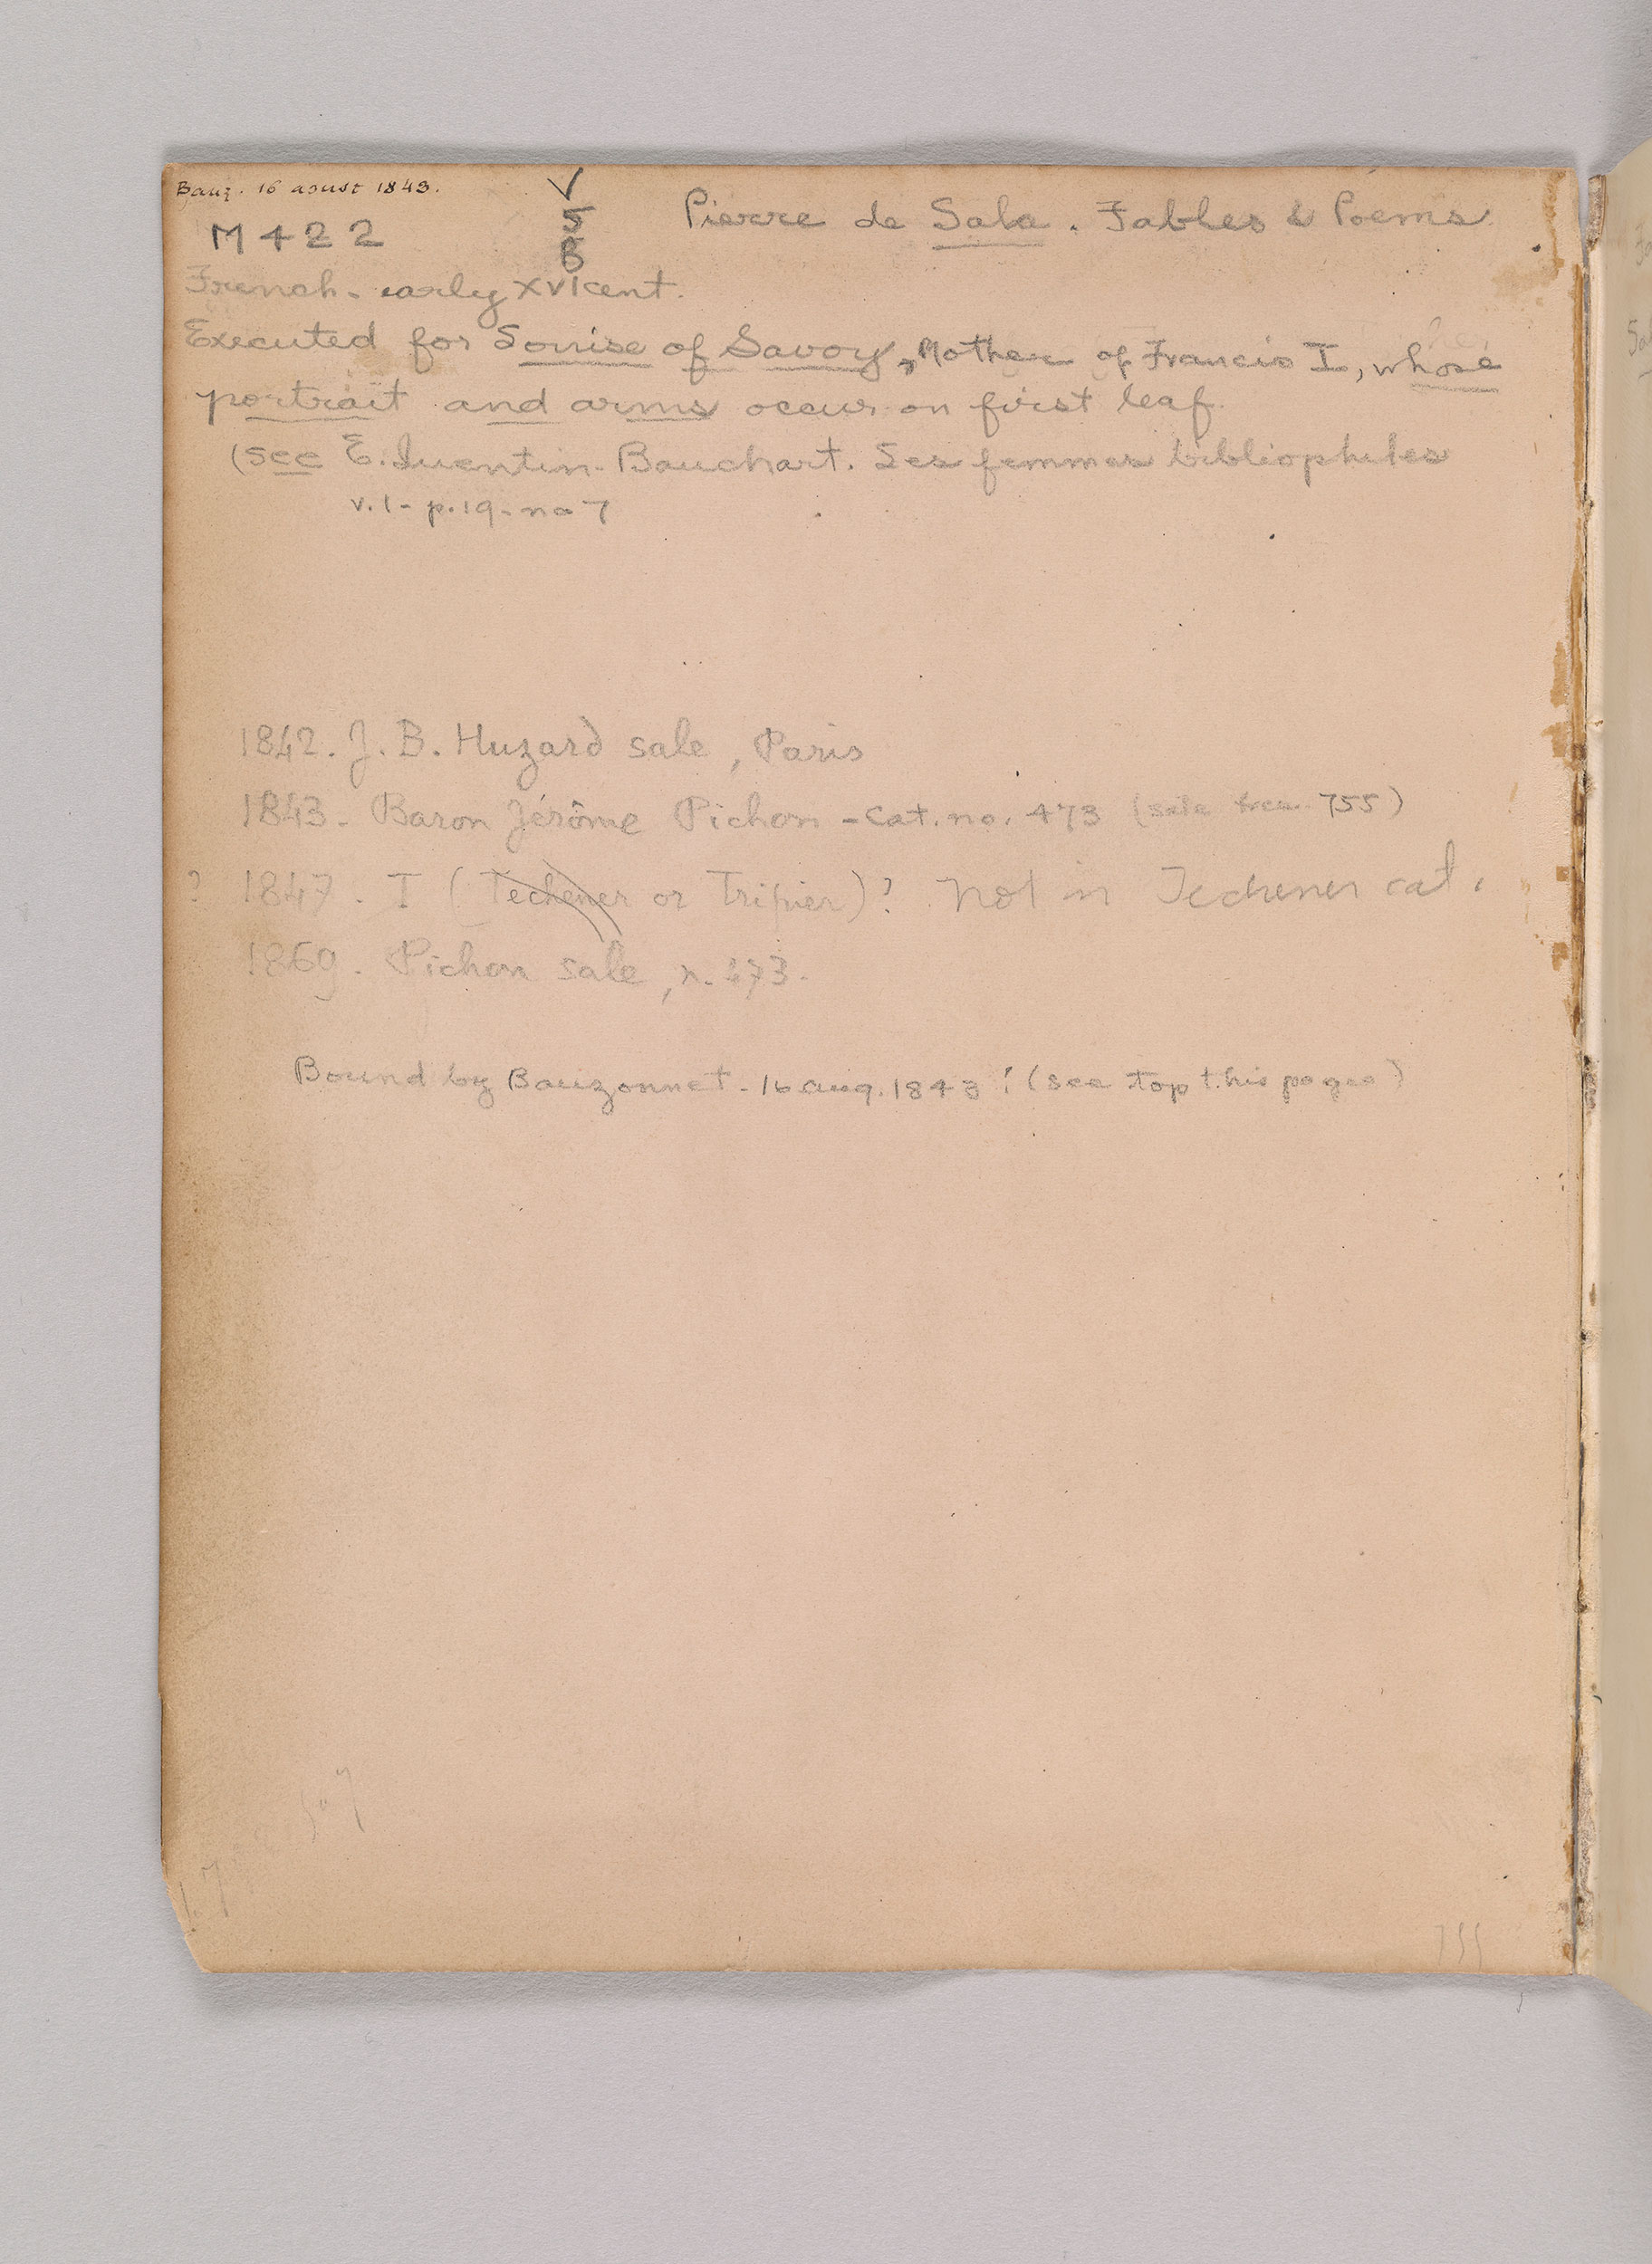 Bauz. 16 aoust 1843.
M 422
V
5
B
Pierre de Sala. Fables & Poems
French - early XVI cent.
Executed for Louise of Savoy, Mother of Francis I, whose
portrait and arms occur on first leaf
(see E. Quentin-Bauchart. Les femmes bibliophiles
v.1 - p.19 - no 7
1842. J. B. Huzard sale, Paris
1843 - Baron Jérôme Pichon - Cat. no. 473 (sale 755)
? 1847. T (Techener or Tripier)? Not in Techener cat.
1869. Pichon sale, n. 473.
Bound by Bauzonnet - 16 aug. 1843! (see top this page)
755